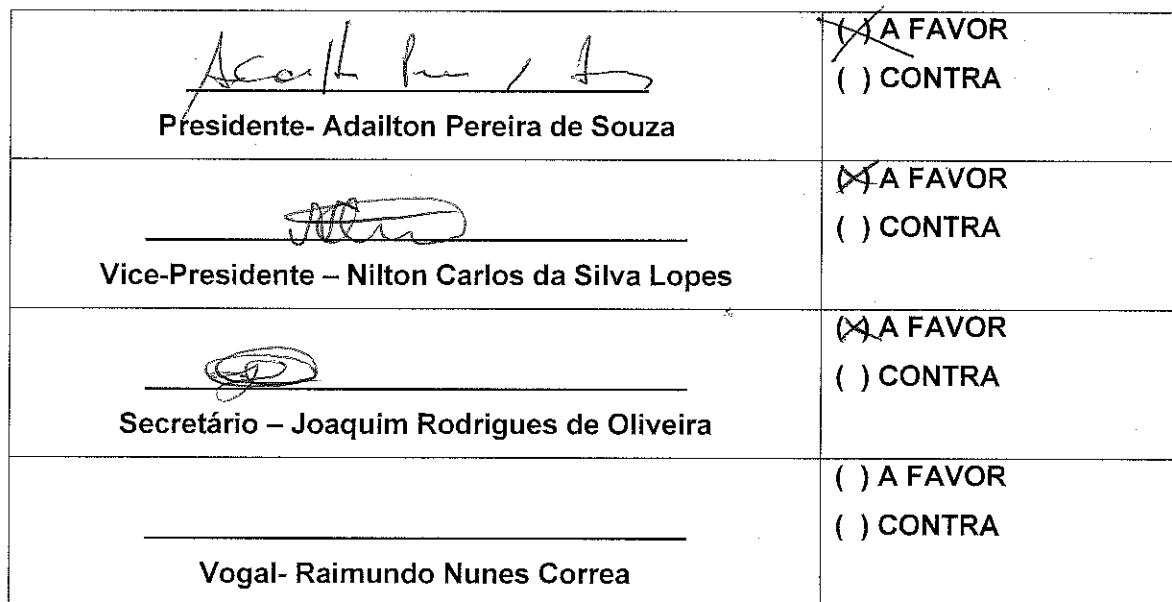 (X) A FAVOR
( ) CONTRA
Presidente- Adailton Pereira de Souza
(X) A FAVOR
( ) CONTRA
Vice-Presidente – Nilton Carlos da Silva Lopes
(X) A FAVOR
( ) CONTRA
Secretário – Joaquim Rodrigues de Oliveira
( ) A FAVOR
( ) CONTRA
Vogal- Raimundo Nunes Correa